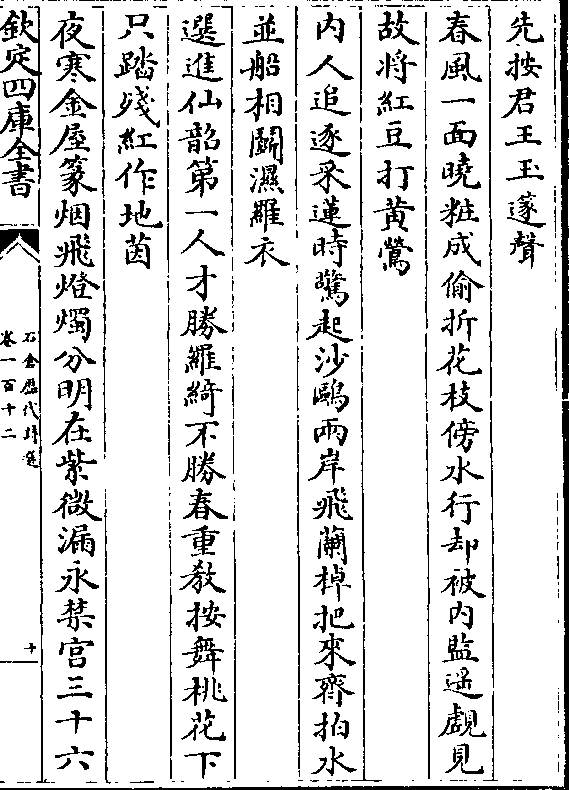 先按君王玉𥴦聲
春風一面曉粧成偷折花枝傍水行却被内監遥覷見
故將紅豆打黄鶯
内人追逐采蓮時驚起沙鷗兩岸飛蘭棹把來齊拍水
並船相鬬濕羅衣
選進仙韶第一人才勝羅綺不勝春重教按舞桃花下
只踏殘紅作地茵
夜寒金屋篆烟飛燈燭分明在紫微漏永禁宫三十六
欽定四庫全書
卷一百十二
十